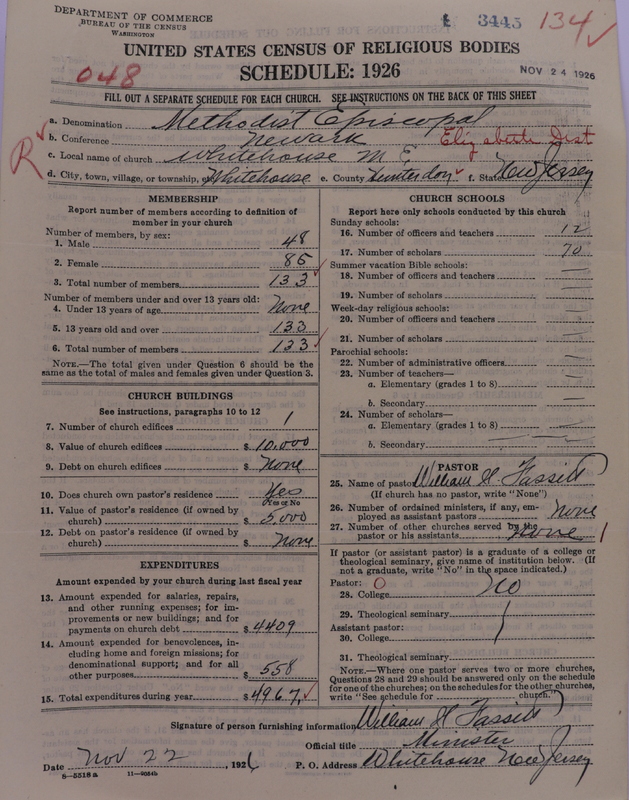 DEPARTMENT OF COMMERCE
BUREAU OF THE CENSUS
WASHINGTON
3445
134
UNITED STATES CENSUS OF RELIGIOUS BODIES
SCHEDULE: 1926
048
NOV 24 1926
FILL OUT A SEPARATE SCHEDULE FOR EACH CHURCH. SEE INSTRUCTIONS ON THE BACK OF THIS SHEET
R
a. Denomination Methodist Episcopal
b. Conference Newark Elizabeth Dist
c. Local name of church Whitehouse M. E.
d. City, town, village, or township, etc. Whitehouse e. County Hunterdon f. State New Jersey
MEMBERSHIP
Report number of members according to definition of
member in your church
Number of members, by sex:
1. Male 48
2. Female 85
3. Total number of members 133
Number of members under and over 13 years old:
4. Under 13 years of age None
5. 13 years old and over 133
6. Total number of members 133
NOTE.—The total given under Question 6 should be the
same as the total of males and females given under Question 3.
CHURCH BUILDINGS
See instructions, paragraphs 10 to 12
7. Number of church edifices 1
8. Value of church edifices $ 10,000
9. Debt on church edifices $ None
10. Does church own pastor's residence Yes
Yes or No
11. Value of pastor's residence (if owned by
church) $ 5,000
12. Debt on pastor's residence (if owned by
church) $ None
EXPENDITURES
Amount expended by your church during last fiscal year
13. Amount expended for salaries, repairs,
and other running expenses; for im-
provements or new buildings; and for
payments on church debt $ 4409
14. Amount expended for benevolences, in-
cluding home and foreign missions; for
denominational support; and for all
other purposes $ 558
15. Total expenditures during year $ 4967
CHURCH SCHOOLS
Report here only schools conducted by this church
Sunday schools:
16. Number of officers and teachers 12
17. Number of scholars 70
Summer vacation Bible schools:
18. Number of officers and teachers —
19. Number of scholars —
Week-day religious schools:
20. Number of officers and teachers —
21. Number of scholars —
Parochial schools:
22. Number of administrative officers —
23. Number of teachers—
a. Elementary (grades 1 to 8) —
b. Secondary —
24. Number of scholars—
a. Elementary (grades 1 to 8) —
b. Secondary —
PASTOR
25. Name of pastor William H. Fassitt
(If church has no pastor, write "None")
26. Number of ordained ministers, if any, em-
ployed as assistant pastors None
27. Number of other churches served by the
pastor or his assistants None 1
If pastor (or assistant pastor) is a graduate of a college or
theological seminary, give name of institution below. (If
not a graduate, write "No" in the space indicated.)
Pastor: 0
28. College No
29. Theological seminary
Assistant pastor:
30. College
31. Theological seminary
NOTE.—Where one pastor serves two or more churches,
Questions 28 and 29 should be answered only on the schedule
for one of the churches; on the schedules for the other churches,
write "See schedule for church.")
Signature of person furnishing information William H Fassitt
Official title Minister
Date Nov 22, 1926 P. O. Address Whitehouse New Jersey
8—5518a 11—9054b